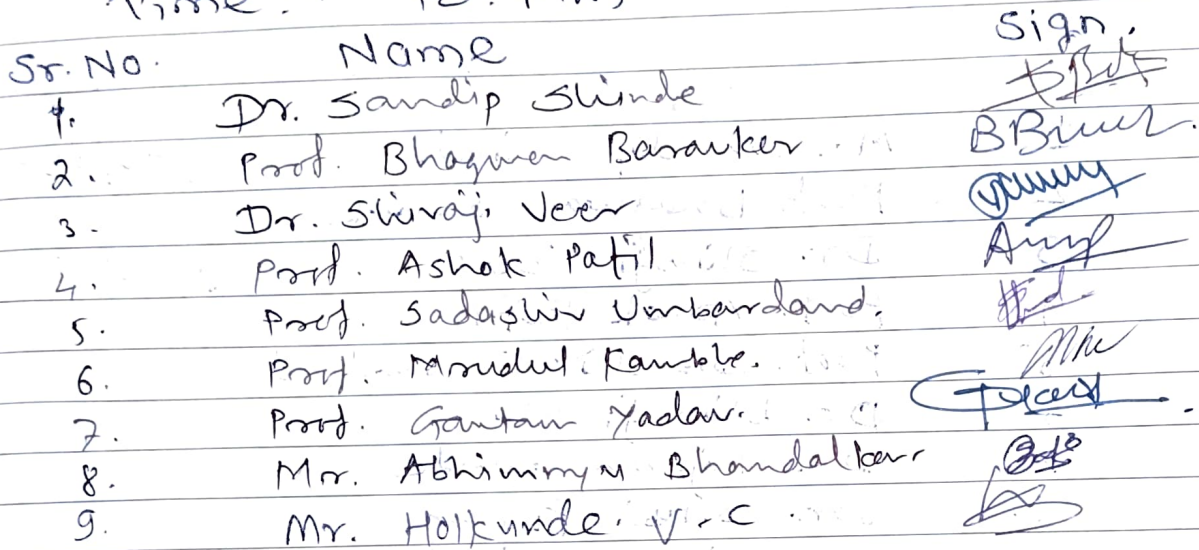 Time:
Sr. No. Name Sign.
1. Dr. Sandip Shinde
2. Prof. Bhagwan Barauker
3. Dr. Shivaji Veer
4. Prof. Ashok Patil
5. Prof. Sadashiv Umbardand.
6. Prof. Mrudul Kamble.
7. Prof. Gautam Yadav.
8. Mr. Bhandalkar
9. Mr. Holkunde. V. C.